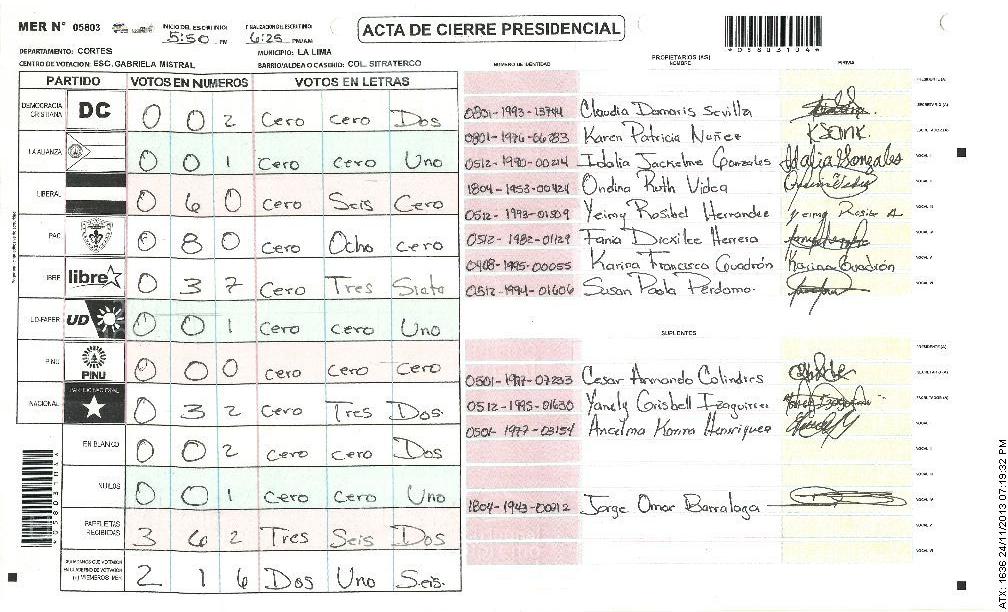 MER N° 05803 INICIO DEL ESCRUTINIO: 5:50 PM FINALIZACION DEL ESCRUTINIO: 6:25 PM/AM
ACTA DE CIERRE PRESIDENCIAL
DEPARTAMENTO: CORTES MUNICIPIO: LA LIMA
CENTRO DE VOTACION: ESC. GABRIELA MISTRAL BARRIO/ALDEA O CASERIO: COL. SITRATERCO
PARTIDO VOTOS EN NUMEROS VOTOS EN LETRAS
DEMOCRACIA CRISTIANA DC 0 0 2 Cero Cero Dos
LA ALIANZA 0 0 1 Cero Cero Uno
LIBERAL 0 6 0 Cero Seis Cero
PAC 0 8 0 Cero Ocho cero
LIBRE libre 0 3 7 Cero Tres Siete
UD-FAPER UD 0 0 1 Cero cero Uno
PINU PINU 0 0 0 cero Cero Cero
NACIONAL PARTIDO NACIONAL 0 3 2 Cero Tres Dos.
EN BLANCO 0 0 2 cero Cero Dos
NULOS 0 0 1 Cero Cero Uno
PAPELETAS RECIBIDAS 3 6 2 Tres Seis Dos
CIUDADANOS QUE VOTARON EN CUADERNO DE VOTACION (+) MIEMBROS MER 2 1 6 Dos Uno Seis.
NUMERO DE IDENTIDAD PROPIETARIOS (AS) NOMBRE FIRMA
PRESIDENTE (A)
0801-1993-13744 Claudia Damaris Sevilla SECRETARIO (A)
0801-1976-06283 Karen Patricia Nuñez
0512-1990-00214 Idalia Jackeline Gonzales Idalia Gonzales VOCAL I
1804-1953-00424 Ondina Ruth Videa VOCAL II
0512-1993-01509 Yeimy Rosibel Hernandez VOCAL III
0512-1982-01129 Fania Herrera VOCAL IV
Karina Francisca Guadrón Karina Guadrón VOCAL V
0512-1994-01606 Susan Paola Perdomo. VOCAL VI
SUPLENTES
PRESIDENTE (A)
0501-1977-07233 Cesar Armando Colindres SECRETARIO (A)
0512-1995-01630 Yanely Grisbell Izaguirre
0501-1977-03154 Ancelma Henriquez VOCAL I
VOCAL II
VOCAL III
1804-1943-00212 Jorge Omar Barralaga VOCAL IV
VOCAL V
VOCAL VI
ATX: 1636 24/11/2013 07:19:32 PM